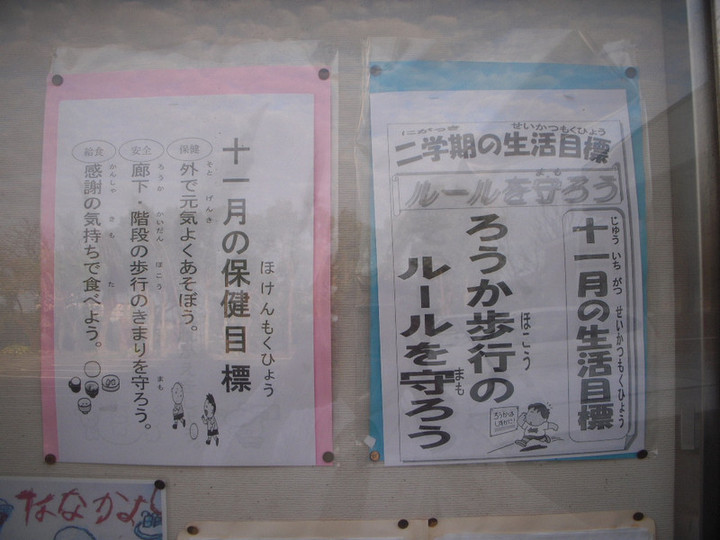 二学期の生活目標
にがっき
せいかつもくひょう
ルールを守ろう
まも
十一月の生活目標
じゅう いち がつ せいかつもくひょう
ろうか歩行の
ほこう
ルールを守ろう
まも
十一月の保健目標
ほけんもくひょう
保健
外で元気よくあそぼう。
そと げんき
安全
廊下・階段の歩行のきまりを守ろう。
ろうか かいだん ほこう まも
給食
感謝の気持ちで食べよう。
かんしゃ きも た
なかよし